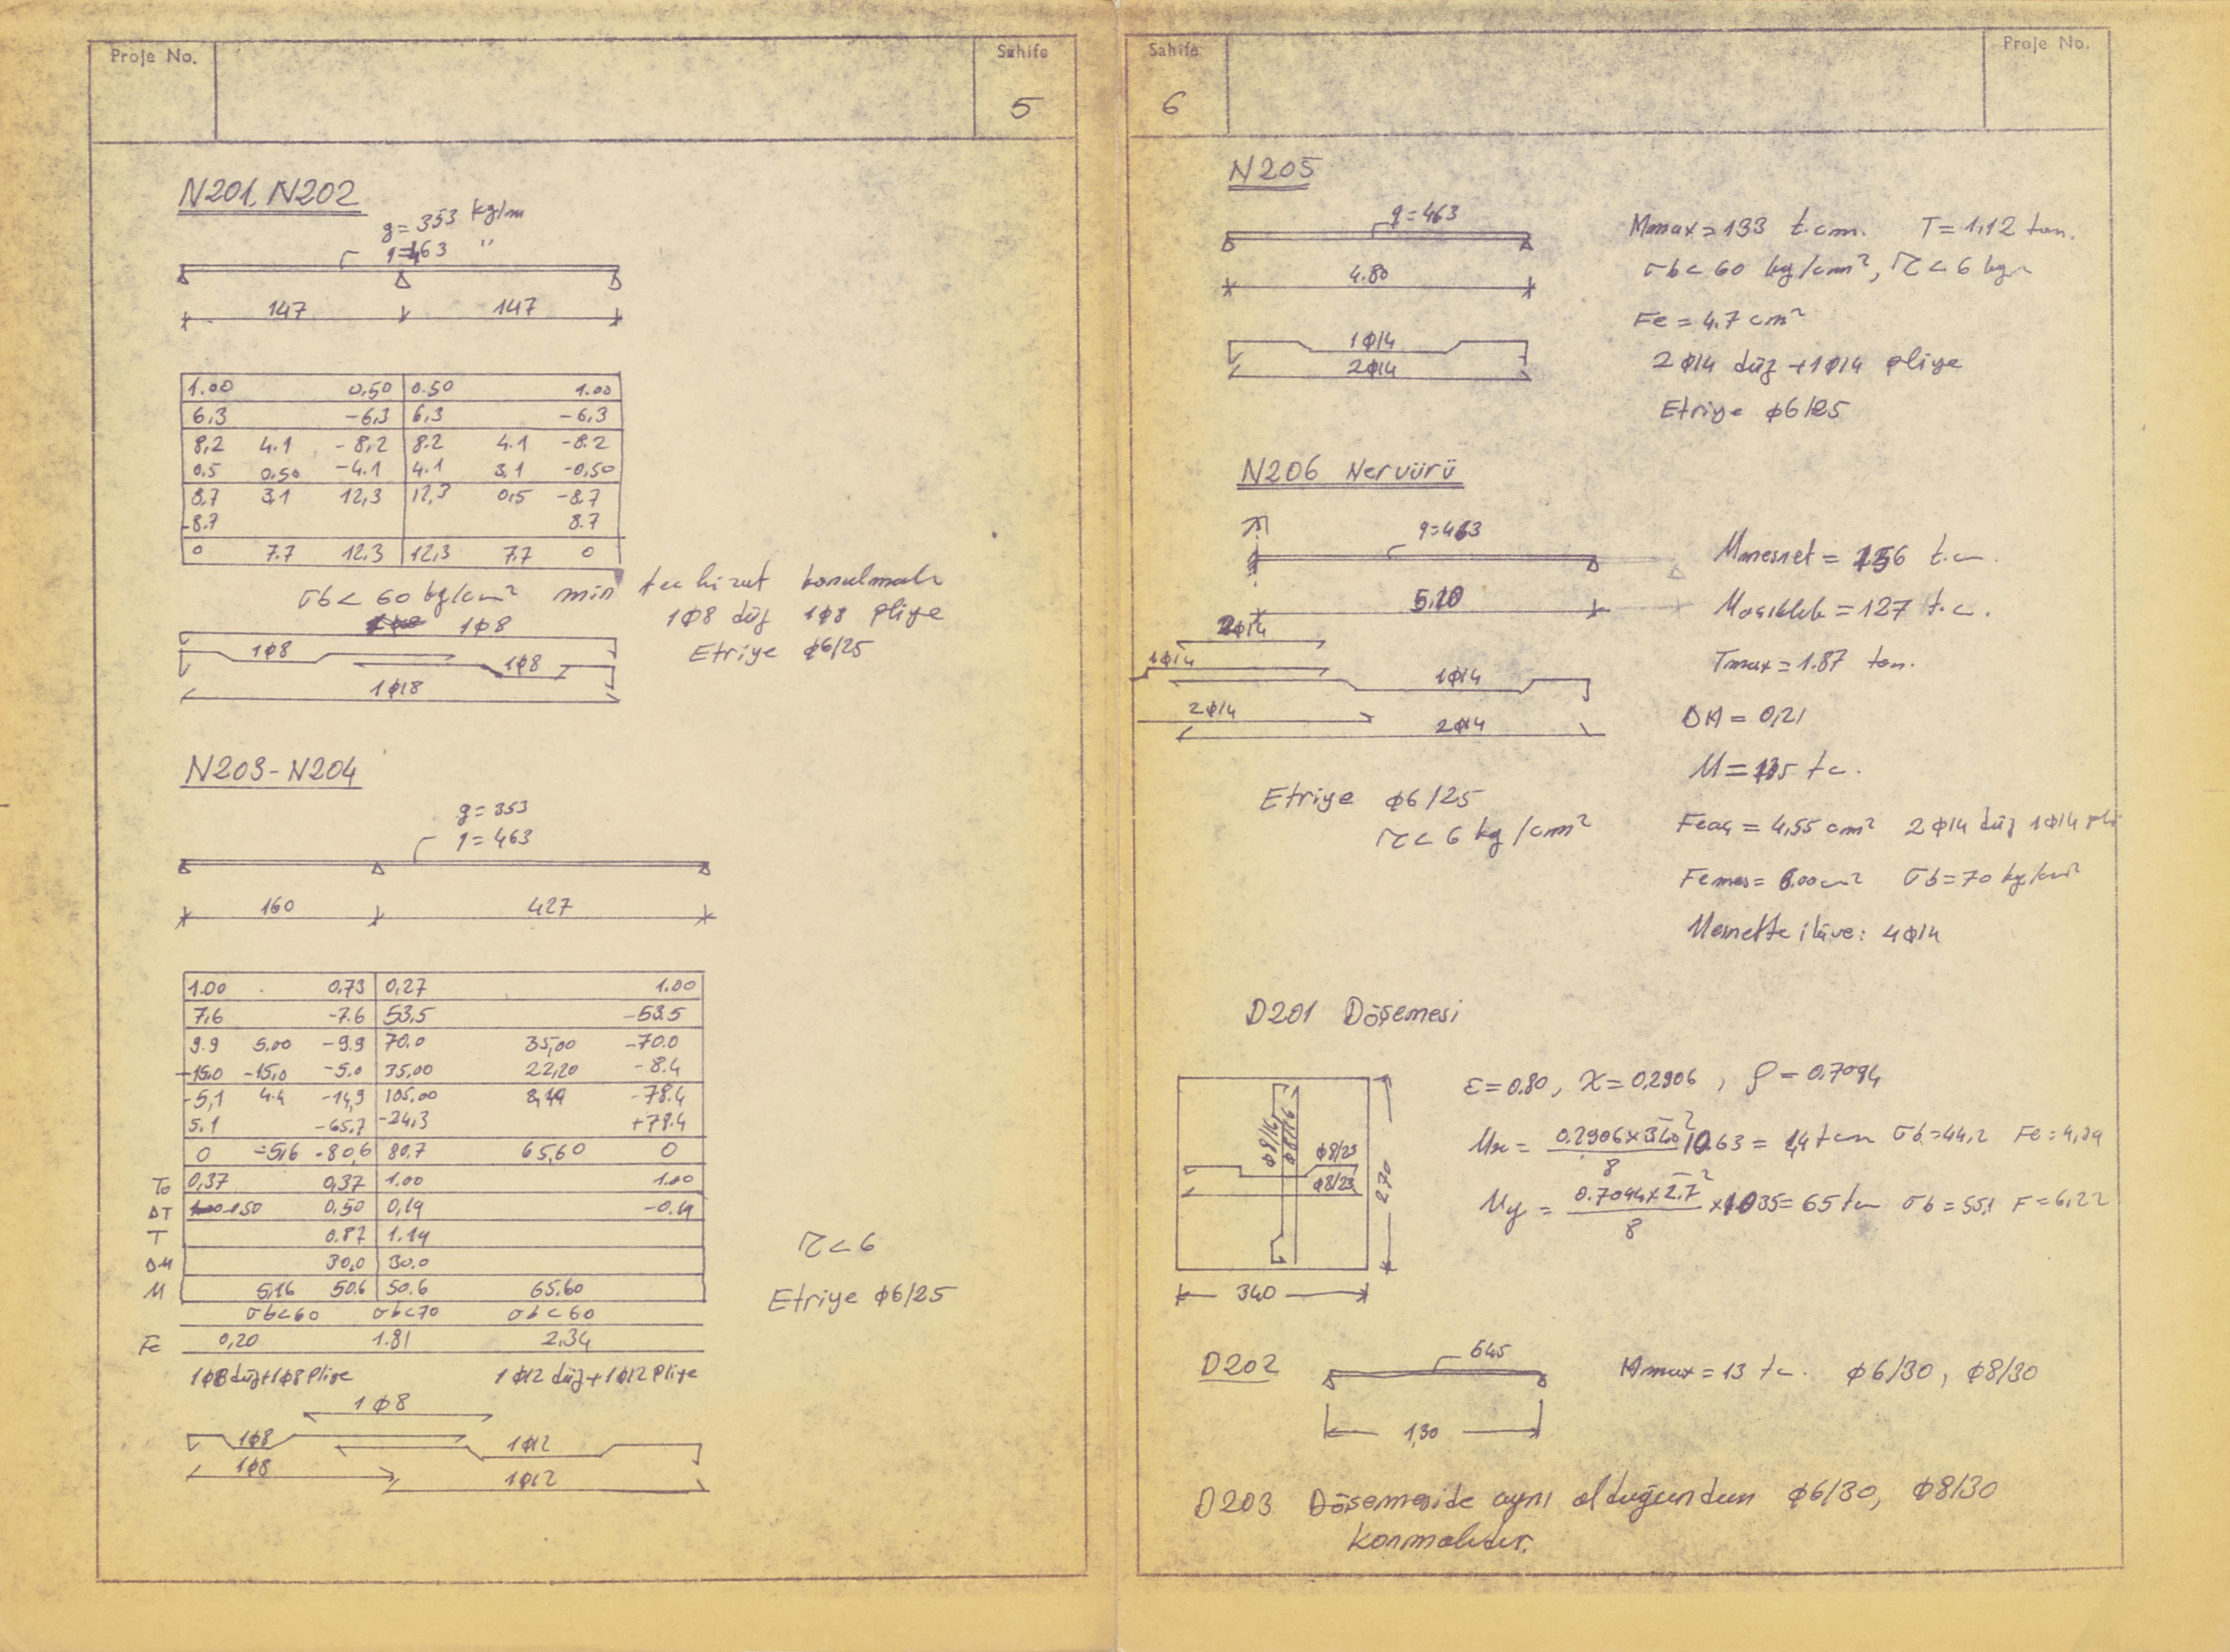 Proje No.
Sahife
5
N201, N202
g=353 kg/m
q=463 "
147 147
1.00 0,50 0.50 1.00
6,3 -6,3 6,3 -6,3
8,2 4.1 -8,2 8.2 4.1 -8.2
0.5 0,50 -4.1 4.1 3,1 -0,50
8,7 3,1 12,3 12,3 0,5 -8.7
-8.7 8.7
0 7.7 12.3 12,3 7.7 0
σb < 60 kg/cm² min techizat konulmalı
1φ8 düz 1φ8 pliye
1φ8
Etriye φ6/25
1φ8 1φ8
1φ18
N203-N204
g=353
q=463
160 427
1.00 0,73 0,27 1.00
7,6 -7.6 53,5 -53.5
9.9 5,00 -9.9 70.0 35,00 -70.0
-15,0 -15,0 -5.0 35,00 22,20 -8.4
-5,1 4.4 -14,9 105,00 -78.4
5.1 -65,7 -24,3 +78.4
0 -5,6 -80,6 80.7 65,60 0
To 0,37 0,37 1.00 1.00
ΔT -1.50 0,50 0,19 -0.19
T 0.87 1.19
ΔM 30,0 30.0
M 5,16 50.6 50.6 65.60
σb<60 σb<70 σb<60
Fe 0,20 1.81 2,34
τ<6
Etriye φ6/25
1φ8 düz+1φ8 Pliye 1φ12 düz+1φ12 Pliye
1φ8
1φ8 1φ12
1φ8 1φ12
Sahife
6
Proje No.
N205
q=463
4.80
1φ14
2φ14
Mmax=133 t.cm. T=1,12 ton.
σb<60 kg/cm², τ<6 kg
Fe=4.7 cm²
2φ14 düz+1φ14 pliye
Etriye φ6/25
N206 Nervürü
q=463
5,20
2φ14
1φ14
1φ14
2φ14
2φ14
Etriye φ6/25
τ<6 kg/cm²
Mmesnet=156 t.c.
Maçıklık=127 t.c.
Tmax=1.87 ton.
ΔM=0,21
M=135 tc.
Feaç=4,55 cm² 2φ14 düz 1φ14 pli
Femes=6.00cm² σb=70 kg/cm²
Mesnette ilâve: 4φ14
D201 Döşemesi
φ8/16
φ8/16
φ8/23
φ8/23
270
340
ε=0.80, χ=0,2906, ρ=0,7094
Mx = 0,2906×3.40² / 8 1063= 14 tcm σb=44,2 Fe=4,24
My = 0.7094×2.7² / 8 ×1035=65 tcm σb=55,1 F=6,22
D202
645
1,30
Mmax=13 tc. φ6/30, φ8/30
D203 Döşemeside aynı olduğundan φ6/30, φ8/30
konmalıdır.